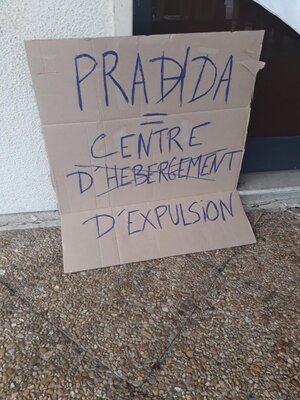 PRAHDA
=
CENTRE
D'HEBERGEMENT
D'EXPULSION